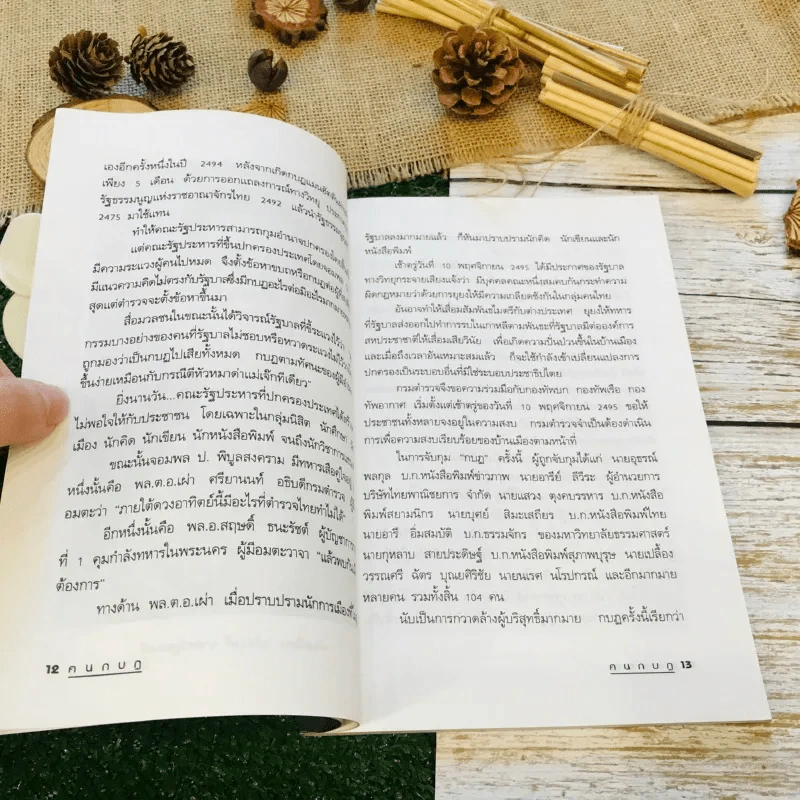 เองอีกครั้งหนึ่งในปี 2494 หลังจากเกิดกบฏแมนฮัตตัน
เพียง 5 เดือน ด้วยการออกแถลงการณ์ทางวิทยุ
รัฐธรรมนูญแห่งราชอาณาจักรไทย 2492 แล้วนำรัฐธรรมนูญ
2475 มาใช้แทน
ทำให้คณะรัฐประหารสามารถกุมอำนาจปกครอง
แต่คณะรัฐประหารที่ขึ้นปกครองประเทศโดยจอมพล
มีความระแวงผู้คนไปหมด จึงตั้งข้อหาขบถหรือกบฏต่อผู้
มีแนวความคิดไม่ตรงกับรัฐบาลซึ่งมีกบฏอะไรต่อมิอะไรมากมาย
สุดแต่ตำรวจจะตั้งข้อหาขึ้นมา
สื่อมวลชนในขณะนั้นได้วิจารณ์รัฐบาลที่ขี้ระแวงไว้ว่า
กรรมบางอย่างของคนที่รัฐบาลไม่ชอบหรือหวาดระแวงไม่ไว้
ถูกมองว่าเป็นกบฏไปเสียทั้งหมด กบฏตามทัศนะของผู้
ขึ้นง่ายเหมือนกับกรณีตีหัวหมาด่าแม่เจ๊กทีเดียว”
ยิ่งนานวัน...คณะรัฐประหารที่ปกครองประเทศได้สร้าง
ไม่พอใจให้กับประชาชน โดยเฉพาะในกลุ่มนิสิต นักศึกษา
เมือง นักคิด นักเขียน นักหนังสือพิมพ์ จนถึงนักวิชาการ
ขณะนั้นจอมพล ป. พิบูลสงคราม มีทหารเสือคู่ใจอยู่
หนึ่งนั้นคือ พล.ต.อ.เผ่า ศรียานนท์ อธิบดีกรมตำรวจ
อมตะว่า “ภายใต้ดวงอาทิตย์นี้มีอะไรที่ตำรวจไทยทำไม่ได้”
อีกหนึ่งนั้นคือ พล.อ.สฤษดิ์ ธนะรัชต์ ผู้บัญชาการ
ที่ 1 คุมกำลังทหารในพระนคร ผู้มีอมตะวาจา “แล้วพบกันใหม่
ต้องการ”
ทางด้าน พล.ต.อ.เผ่า เมื่อปราบปรามนักการเมือง
12 คนกบฏ
รัฐบาลลงมากมายแล้ว ก็หันมาปราบปรามนักคิด นักเขียนและนัก
หนังสือพิมพ์
เช้าตรู่วันที่ 10 พฤศจิกายน 2495 ได้มีประกาศของรัฐบาล
ทางวิทยุกระจายเสียงแจ้งว่า มีบุคคลคณะหนึ่งสมคบกันกระทำความ
ผิดกฎหมายว่าด้วยการยุยงให้มีความเกลียดชังกันในกลุ่มคนไทย
อันอาจทำให้เสื่อมสัมพันธไมตรีกับต่างประเทศ ยุยงให้ทหาร
ที่รัฐบาลส่งออกไปทำการรบในเกาหลีตามพันธะที่รัฐบาลมีต่อองค์การ
สหประชาชาติให้เสื่อมเสียวินัย เพื่อก่อความปั่นป่วนขึ้นในบ้านเมือง
และเมื่อถึงเวลาอันเหมาะสมแล้ว ก็จะใช้กำลังเข้าเปลี่ยนแปลงการ
ปกครองเป็นระบอบอื่นที่มิใช่ระบอบประชาธิปไตย
กรมตำรวจจึงขอความร่วมมือกับกองทัพบก กองทัพเรือ กอง
ทัพอากาศ เริ่มตั้งแต่เช้าตรู่ของวันที่ 10 พฤศจิกายน 2495 ขอให้
ประชาชนทั้งหลายจงอยู่ในความสงบ กรมตำรวจจำเป็นต้องดำเนิน
การเพื่อความสงบเรียบร้อยของบ้านเมืองตามหน้าที่
ในการจับกุม “กบฏ” ครั้งนี้ ผู้ถูกจับกุมได้แก่ นายอุธรณ์
พลกุล บ.ก.หนังสือพิมพ์ข่าวภาพ นายอารีย์ ลีวีระ ผู้อำนวยการ
บริษัทไทยพาณิชยการ จำกัด นายแสวง ตุงคบรรหาร บ.ก.หนังสือ
พิมพ์สยามนิกร นายบุศย์ สิมะเสถียร บ.ก.หนังสือพิมพ์ไทย
นายอารี อิ่มสมบัติ บ.ก.ธรรมจักร ของมหาวิทยาลัยธรรมศาสตร์
นายกุหลาบ สายประดิษฐ์ บ.ก.หนังสือพิมพ์สุภาพบุรุษ นายเปลื้อง
วรรณศรี ฉัตร บุณยศิริชัย นายนเรศ นโรปกรณ์ และอีกมากมาย
หลายคน รวมทั้งสิ้น 104 คน
นับเป็นการกวาดล้างผู้บริสุทธิ์มากมาย กบฏครั้งนี้เรียกว่า
คนกบฏ 13